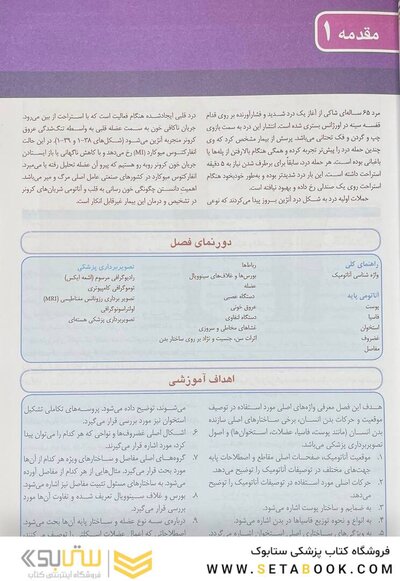 مقدمه ۱
مرد ۶۵ ساله‌ای شاکی از آغاز یک درد شدید و فشارآورنده بر روی قدام
قفسه سینه در اورژانس بستری شده است. انتشار این درد به سمت بازوی
چپ و گردن و فک تحتانی می‌باشد. پرسش از بیمار مشخص کرد که وی
چندین حمله درد را پیش‌تر تجربه کرده و همگی هنگام بالارفتن از پله‌ها یا
باغبانی بوده است. هر حمله درد، سابقاً برای برطرف شدن نیاز به ۵ دقیقه
استراحت داشته است. این بار درد شدیدتر بوده و به‌طور خودبخود هنگام
استراحت روی یک صندلی رخ داده و بهبود نیافته است.
حملات اولیه درد به شکل درد آنژین بروز پیدا می‌کردند که نوعی
درد قلبی ایجادشده هنگام فعالیت است که با استراحت از بین می‌رود.
جریان ناکافی خون به سمت عضله قلبی به واسطه تنگ‌شدگی عروق
کرونر منجربه آنژین می‌شود (شکل‌های ۳۸-۱ و ۳۹-۱). در این حالت
جریان خون کرونر روبه رو هستیم که پیرو آن عضله تحلیل رفته و می‌میرد.
انفارکتوس میوکارد (MI) رخ می‌دهد و با کاهش ناگهانی یا باز ایستادن
انفارکتوس میوکارد در کشورهای صنعتی عامل اصلی مرگ و میر می‌باشد.
اهمیت دانستن چگونگی خون رسانی به قلب و آناتومی شریان‌های کرونر
در تشخیص و درمان این بیمار غیرقابل انکار است.
دورنمای فصل
راهنمای کلی
واژه شناسی آناتومیک
آناتومی پایه
پوست
فاسیا
استخوان
غضروف
مفاصل
رباط‌ها
بورس‌ها و غلاف‌های سینوویال
عضله
دستگاه عصبی
عروق خونی
دستگاه لنفاوی
غشاهای مخاطی و سروزی
اثرات سن، جنسیت و نژاد بر روی ساختار بدن
تصویربرداری پزشکی
رادیوگرافی مرسوم (اشعه ایکس)
توموگرافی کامپیوتری
تصویر برداری رزونانس مغناطیسی (MRI)
اولتراسونوگرافی
تصویربرداری پزشکی هسته‌ای
اهداف آموزشی
هدف این فصل معرفی واژه‌های اصلی مورد استفاده در توصیف
موقعیت و حرکات بدن انسان، برخی ساختارهای اصلی سازنده
بدن انسان (مانند پوست، فاسیا، عضلات، استخوان‌ها) و اصول
تصویربرداری پزشکی می‌باشد.
۱. موقعیت آناتومیک، صفحات اصلی مقاطع و اصطلاحات پایه
جهت‌های مختلف در توصیفات آناتومیک را توضیح می‌دهد.
۲. حرکات اصلی مورد استفاده در توصیفات آناتومیک را توضیح
می‌دهد.
۳. به ضمایم و ساختار پوست اشاره می‌شود.
۴. به انواع و نحوه توزیع فاسیاها در بدن اشاره می‌شود.
می‌شوند، توضیح داده می‌شود. پروسه‌های تکاملی تشکیل
استخوان نیز مورد بررسی قرار می‌گیرد.
۶. اشکال اصلی غضروف‌ها و نواحی که هر کدام را می‌توان پیدا
کرد، مورد اشاره قرار می‌گیرند.
۷. گروه‌های اصلی مفاصل و ساختارهای ویژه هر کدام از آن‌ها
مورد بحث قرار می‌گیرد. مثال‌هایی از هر کدام از مفاصل آورده
می‌شود. به ساختارهای مسئول تثبیت مفاصل نیز اشاره می‌شود.
۸. بورس و غلاف سینوویال تعریف شده و تفاوت آن‌ها مورد
بررسی قرار می‌گیرد.
۹. درباره‌ی سه نوع عضله و ساختار پایه آن‌ها بحث می‌شود.
ستابوک
فروشگاه اینترنتی کتاب
فروشگاه کتاب پزشکی ستابوک
WWW.SETABOOK.COM